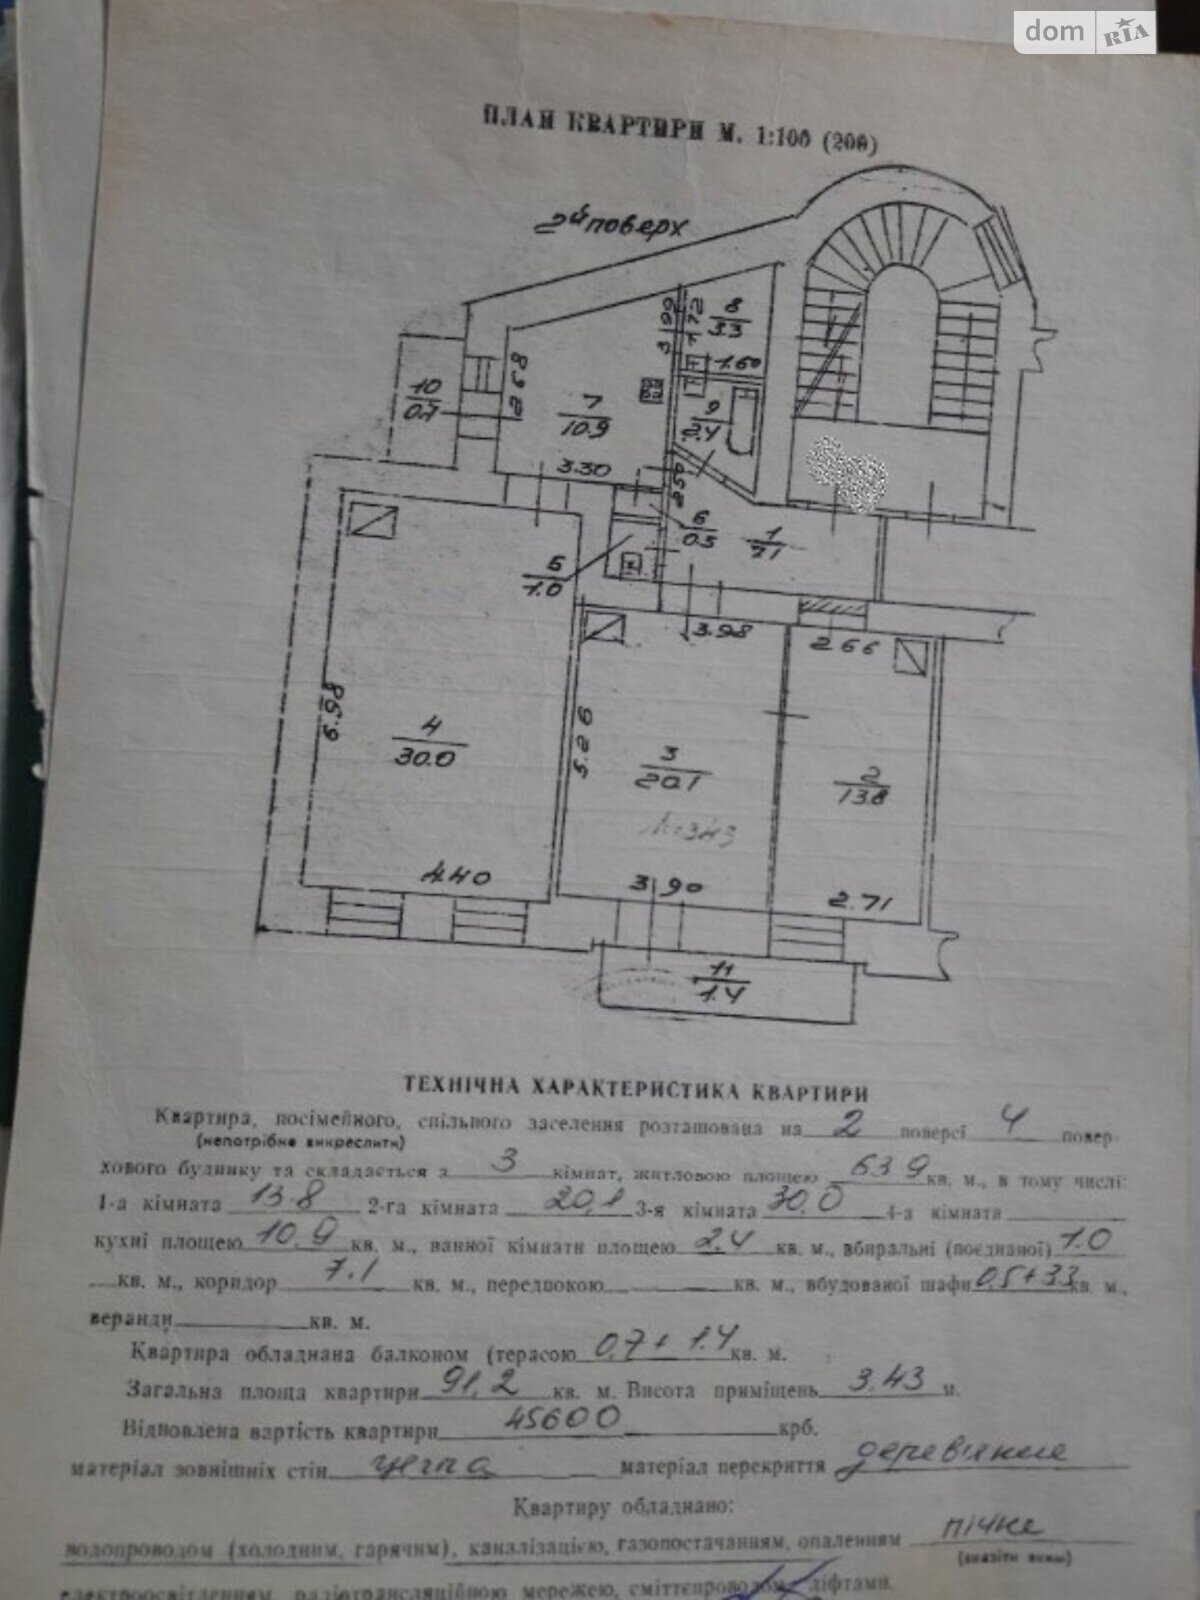 dom RIA
ПЛАН КВАРТИРИ М. 1:100 (200)
2й поверх
8
3.3
1.72
3.99
1.60
10
0.7
2.68
7
10.9
9
2.4
3.30
2.50
6
0.5
1
7.1
5
1.0
3.98
2.66
6.98
4
30.0
5.26
3
20.1
2
13.8
h=3.43
4.40
3.90
2.71
11
1.4
ТЕХНІЧНА ХАРАКТЕРИСТИКА КВАРТИРИ
Квартира, посімейного, спільного заселення розташована на 2 поверсі 4 повер-
(непотрібне викреслити)
хового будинку та складається з 3 кімнат, житловою площею 63.9 кв. м., в тому числі:
1-а кімната 13.8 2-га кімната 20,1 3-я кімната 30.0 4-а кімната
кухні площею 10.9 кв. м., ванної кімнати площею 2.4 кв. м., вбиральні (поєднаної) 1.0
кв. м., коридор 7.1 кв. м., передпокою кв. м., вбудованої шафи 0,5+3.3 кв. м.,
веранди кв. м.
Квартира обладнана балконом (терасою 0,7 + 1.4 кв. м.
Загальна площа квартири 91,2 кв. м. Висота приміщень 3.43 м.
Відновлена вартість квартири 45600 крб.
матеріал зовнішніх стін цегла матеріал перекриття дерев'яне
Квартиру обладнано:
водопроводом (холодним, гарячим), каналізацією, газопостачанням, опаленням пічне
(вказати яким)
електроосвітленням, радіотрансляційною мережею, сміттєпроводом, ліфтами.